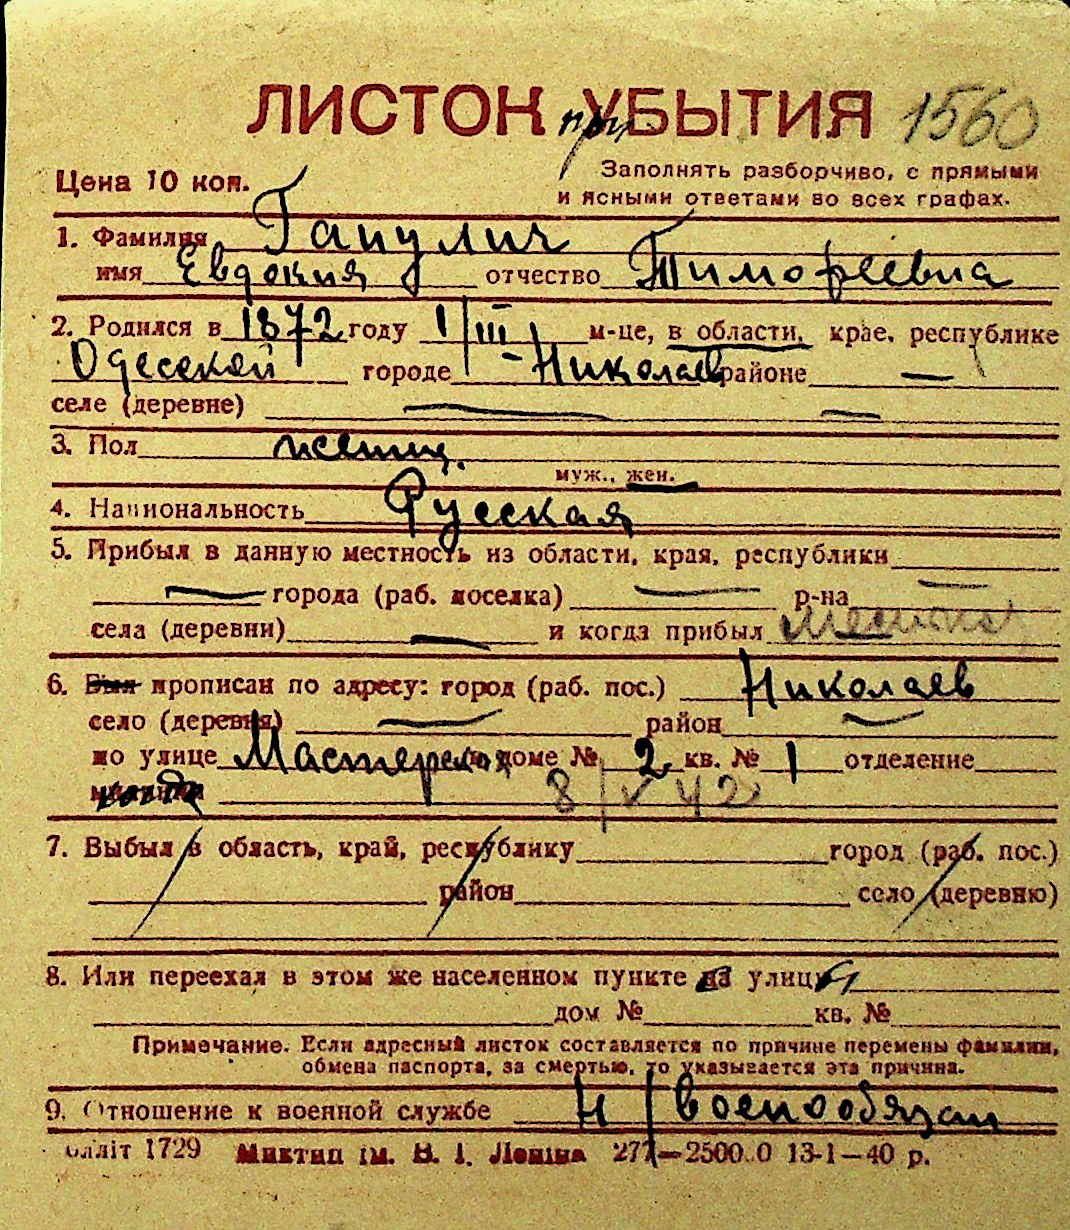 ЛИСТОК при УБЫТИЯ 1560
Цена 10 коп. Заполнять разборчиво, с прямыми
и ясными ответами во всех графах.
1. Фамилия Гапулич
имя Евдокия отчество Тимофеевна
2. Родился в 1872 году 1/III м-це, в области, крае, республике
Одесской городе - Николаев районе —
селе (деревне) — —
3. Пол женщ.
муж., жен.
4. Национальность Русская
5. Прибыл в данную местность из области, края, республики —
— города (раб. поселка) — р-на
села (деревни) — и когда прибыл
6. Был прописан по адресу: город (раб. пос.) Николаев
село (деревня) — район —
по улице Мастерская доме № 2 кв. № 1 отделение
8/V 42
7. Выбыл в область, край, республику город (раб. пос.)
район село (деревню)
8. Или переехал в этом же населенном пункте на улицу
дом № кв. №
Примечание. Если адресный листок составляется по причине перемены фамилии,
обмена паспорта, за смертью, то указывается эта причина.
9. Отношение к военной службе н/военнообязан
блліт 1729 Миктип ім. В. І. Леніна 277—2500.0 13-1—40 р.